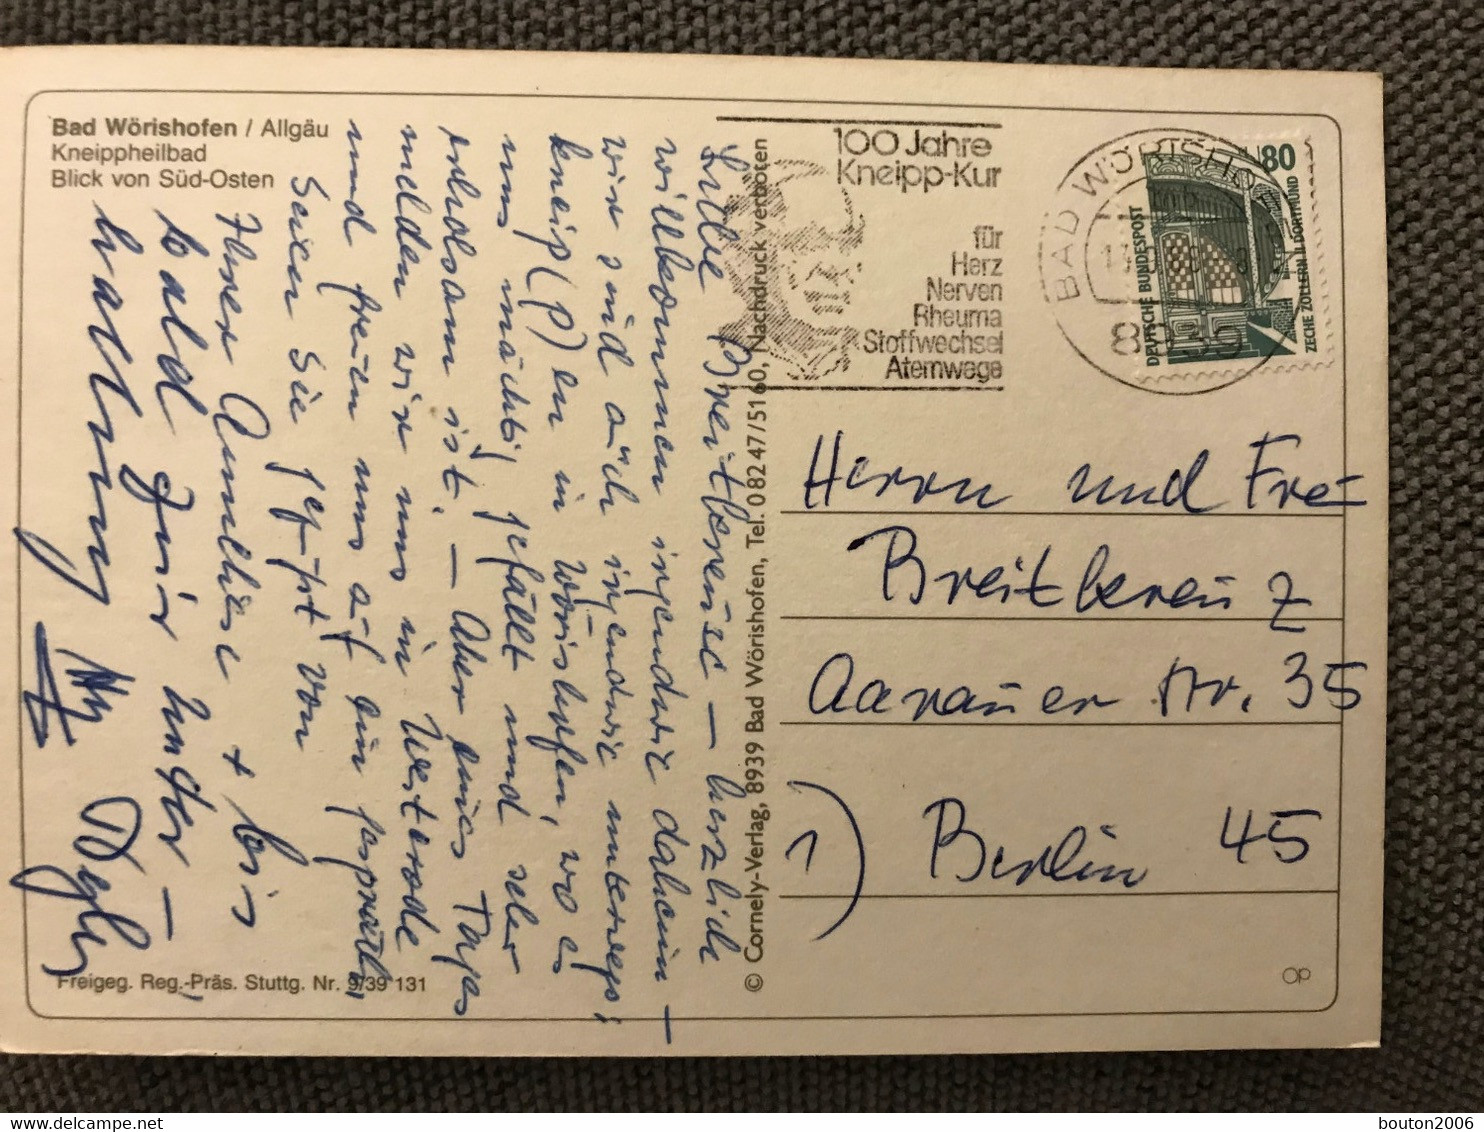 Bad Wörishofen / Allgäu
Kneippheilbad
Blick von Süd-Osten
Liebe Breitkreuze – herzlich
willkommen irgendwie daheim –
wir sind auch irgendwie unterwegs:
kneip(p)en in Wörishofen, wo es
uns mächtig gefällt und sehr
erholsam ist. – Aber eines Tages
melden wir uns in Westerode
und freuen uns auf ein
Seien Sie gegrüßt von
Ihrer Anneliese + bis
bald Ihrer
© Cornely-Verlag, 8939 Bad Wörishofen, Tel. 08247/5160, Nachdruck verboten
100 Jahre
Kneipp-Kur
für
Herz
Nerven
Rheuma
Stoffwechsel
Atemwege
BAD WÖRISHO
80
DEUTSCHE BUNDESPOST
ZECHE ZOLLERN II, DORTMUND
8939
Herrn und Frau
Breitkreuz
Aarauer Str. 35
1) Berlin 45
Freigeg. Reg.-Präs. Stuttg. Nr. 9/39 131
OP
bouton2006